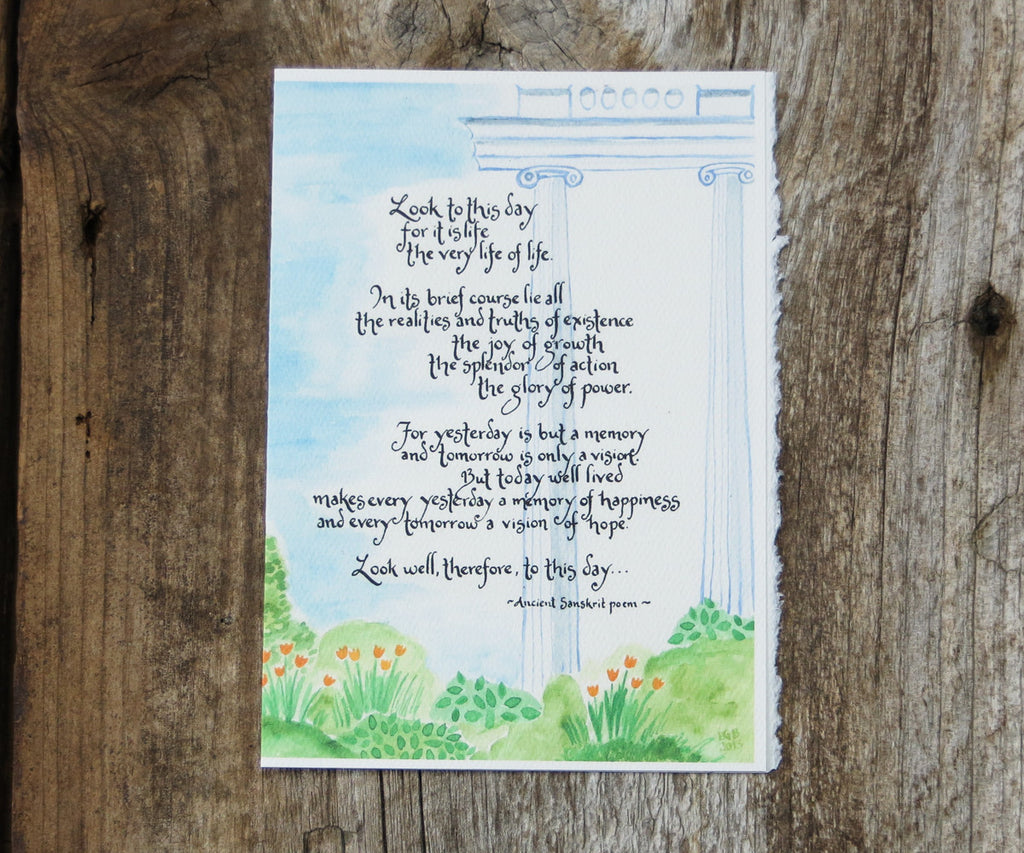 Look to this day
for it is life
the very life of life.
In its brief course lie all
the realities and truths of existence
the joy of growth
the splendor of action
the glory of power.
For yesterday is but a memory
and tomorrow is only a vision.
But today well lived
makes every yesterday a memory of happiness
and every tomorrow a vision of hope.
Look well, therefore, to this day...
~Ancient Sanskrit poem~
2013